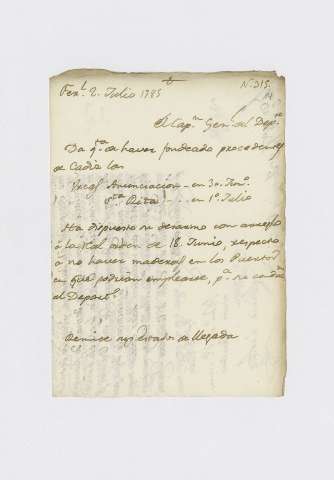 Fer.l 2. Julio 1785
N.315.
El Cap.n Gen.l del Dep.to
Da q.ta de haver fondeado procedentes
de Cadiz las
Fragt. Anunciacion - en 30. Jun.o
S.ta Rita - en 1.o Julio
Ha dispuesto su desarmo con arreglo
á la Rl. orden de 18. Junio, respecto
á no haver maderas en los Puertos
en que podrian emplearse, p.a
el Depart.o
Remite estados de llegada